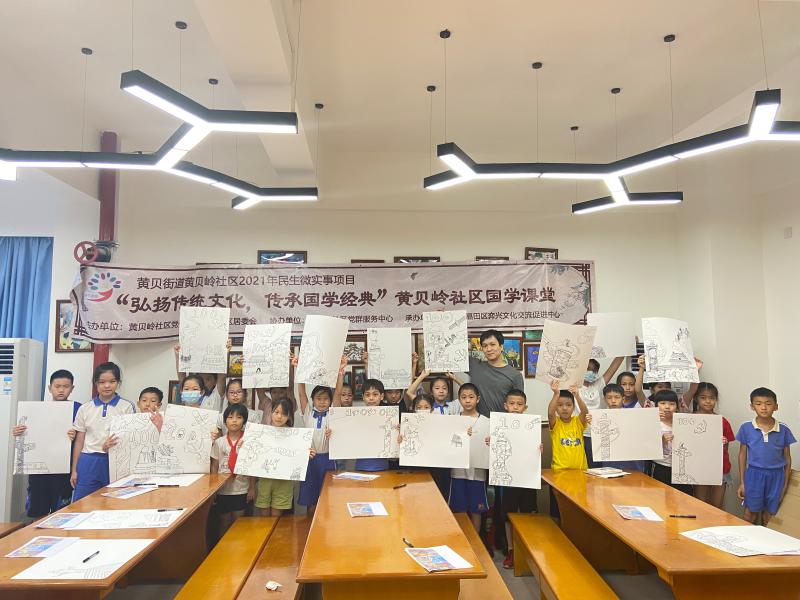 黄贝街道黄贝岭社区2021年民生微实事项目
“弘扬传统文化，传承国学经典”黄贝岭社区国学课堂
办单位：黄贝岭社区党 区居委会 协办单位： 区党群服务中心 承办 福田区弈兴文化交流促进中心
100
100
100
100
100